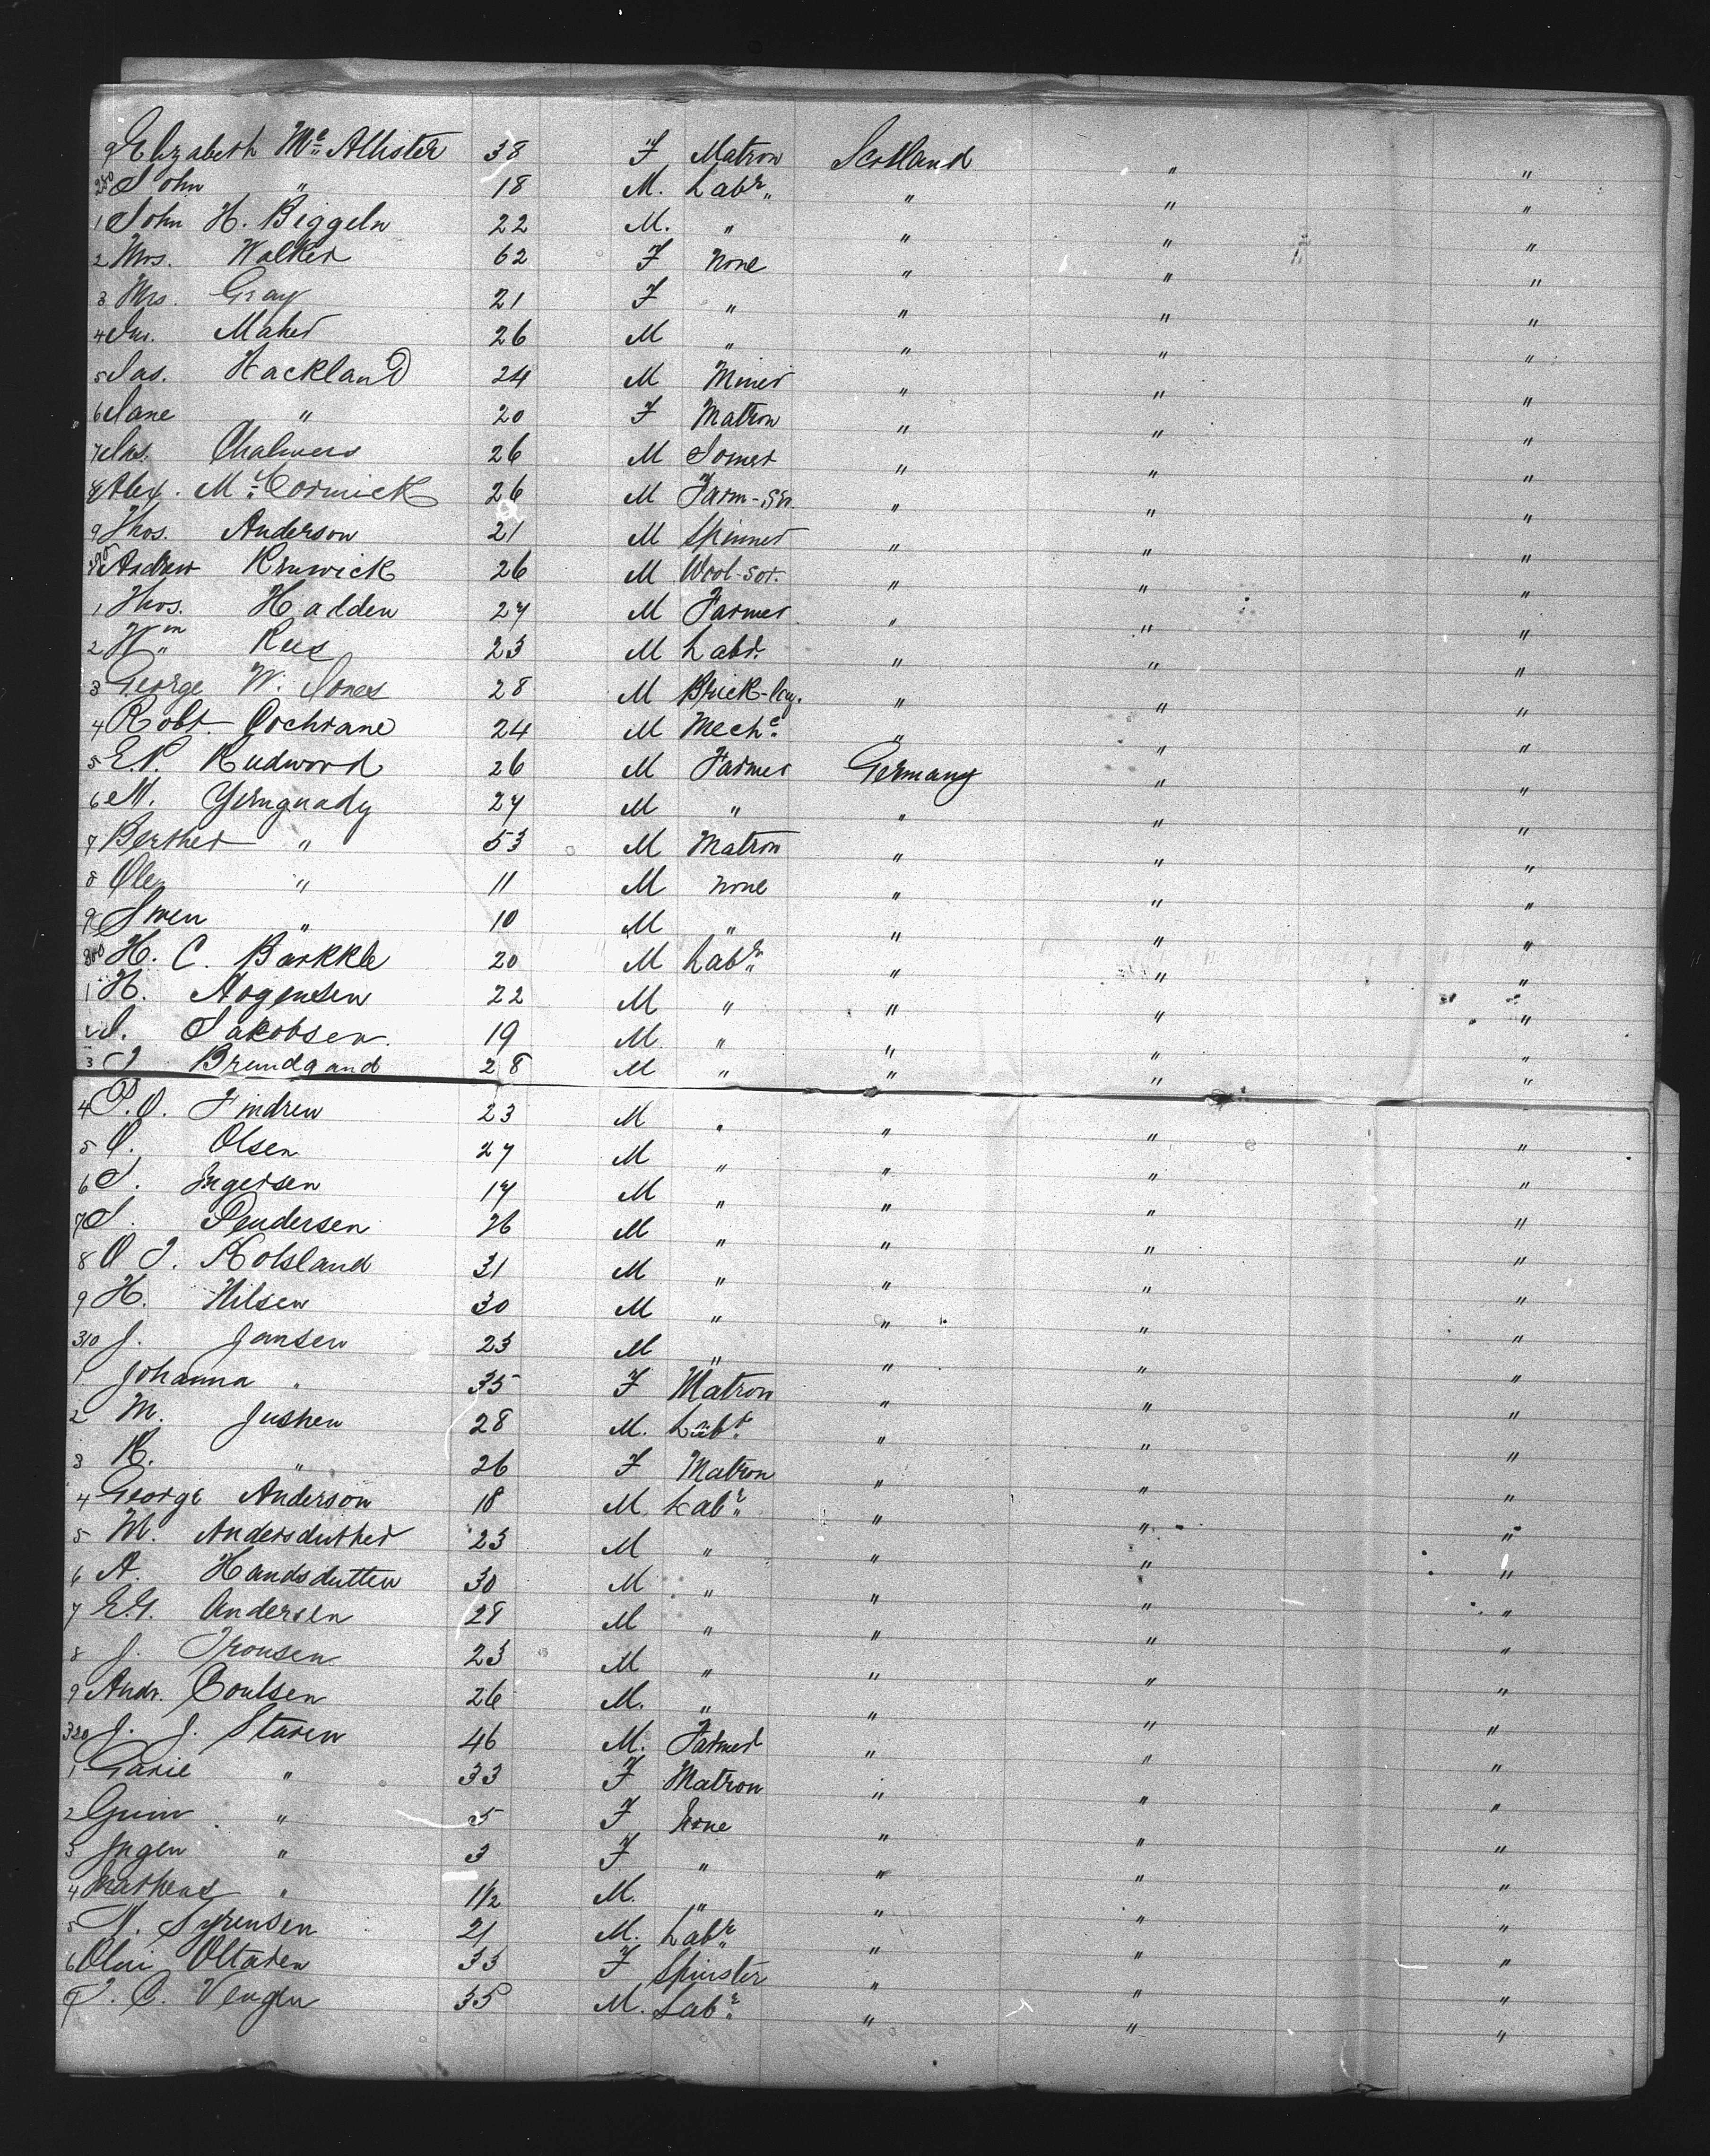 9 Elizabeth Mc Allister 38 F Matron Scotland " "
280 John " 18 M. Labr " " "
1 John H. Biggeln 22 M. " " " "
2 Mrs. Walker 62 F None " " "
3 Mrs. Gray 21 F " " " "
4 Maher 26 M " " " "
5 Jas. Hackland 24 M Miner " " "
6 Jane " 20 F Matron " " "
7 Jas. Chalmers 26 M Joiner " " "
8 Alex. Mc Cormick 26 M Farm-Sr. " " "
9 Thos. Anderson 21 M Spinner " " "
290 Andrew Renwick 26 M Wool-Sor. " " "
1 Thos. Hadden 27 M Farmer " " "
2 Wm Rees 23 M Labr. " " "
3 George W. Jones 28 M Brick-lay. " " "
4 Robt. Cochrane 24 M Mechc " " "
5 E.N. Rudword 26 M Farmer Germany " "
6 M. Yernguady 27 M " " " "
7 Berther " 53 M Matron " " "
8 Ole " 11 M None " " "
9 Swen " 10 M " " " "
300 H. C. Barkkle 20 M Labr " " "
1 H. Aogensen 22 M " " " "
2 J. Jakobsen 19 M " " " "
3 J Brundgand 28 M " " " "
4 P.O. Findren 23 M " " " "
5 O. Olsen 27 M " " " "
6 S. Ingersen 17 M " " " "
7 S. Pendersen 26 M " " " "
8 O J. Kolsland 31 M " " " "
9 H. Nilsen 30 M " " " "
310 J. Jansen 23 M " " " "
1 Johanna " 35 F Matron " " "
2 M. Jushen 28 M. Labr " " "
3 K. " 26 F Matron " " "
4 George Anderson 18 M. Labr " " "
5 M. Andersduther 23 M " " " "
6 A. Handsdutten 30 M " " " "
7 E.G. Andersen 28 M " " " "
8 J. Tronsen 23 M " " " "
9 Andr. Coulsen 26 M. " " " "
320 J. J. Staren 46 M. Farmer " " "
1 Garie " 33 F Matron " " "
2 Guim " 5 F None " " "
3 Ingen " 3 F " " " "
4 Mathens " 1 1/2 M. " " " "
5 N. Syrensen 21 M. Labr " " "
6 Olui Oltaren 33 F Spinster " " "
7 J. C. Vengen 35 M. Labr " " "